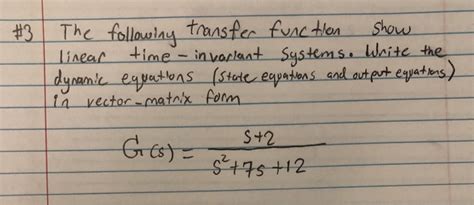 #3 The following transfer function show
linear time-invariant systems. Write the
dynamic equations (state equations and output equations)
in vector-matrix form
G(s) = s+2 / s²+7s+12